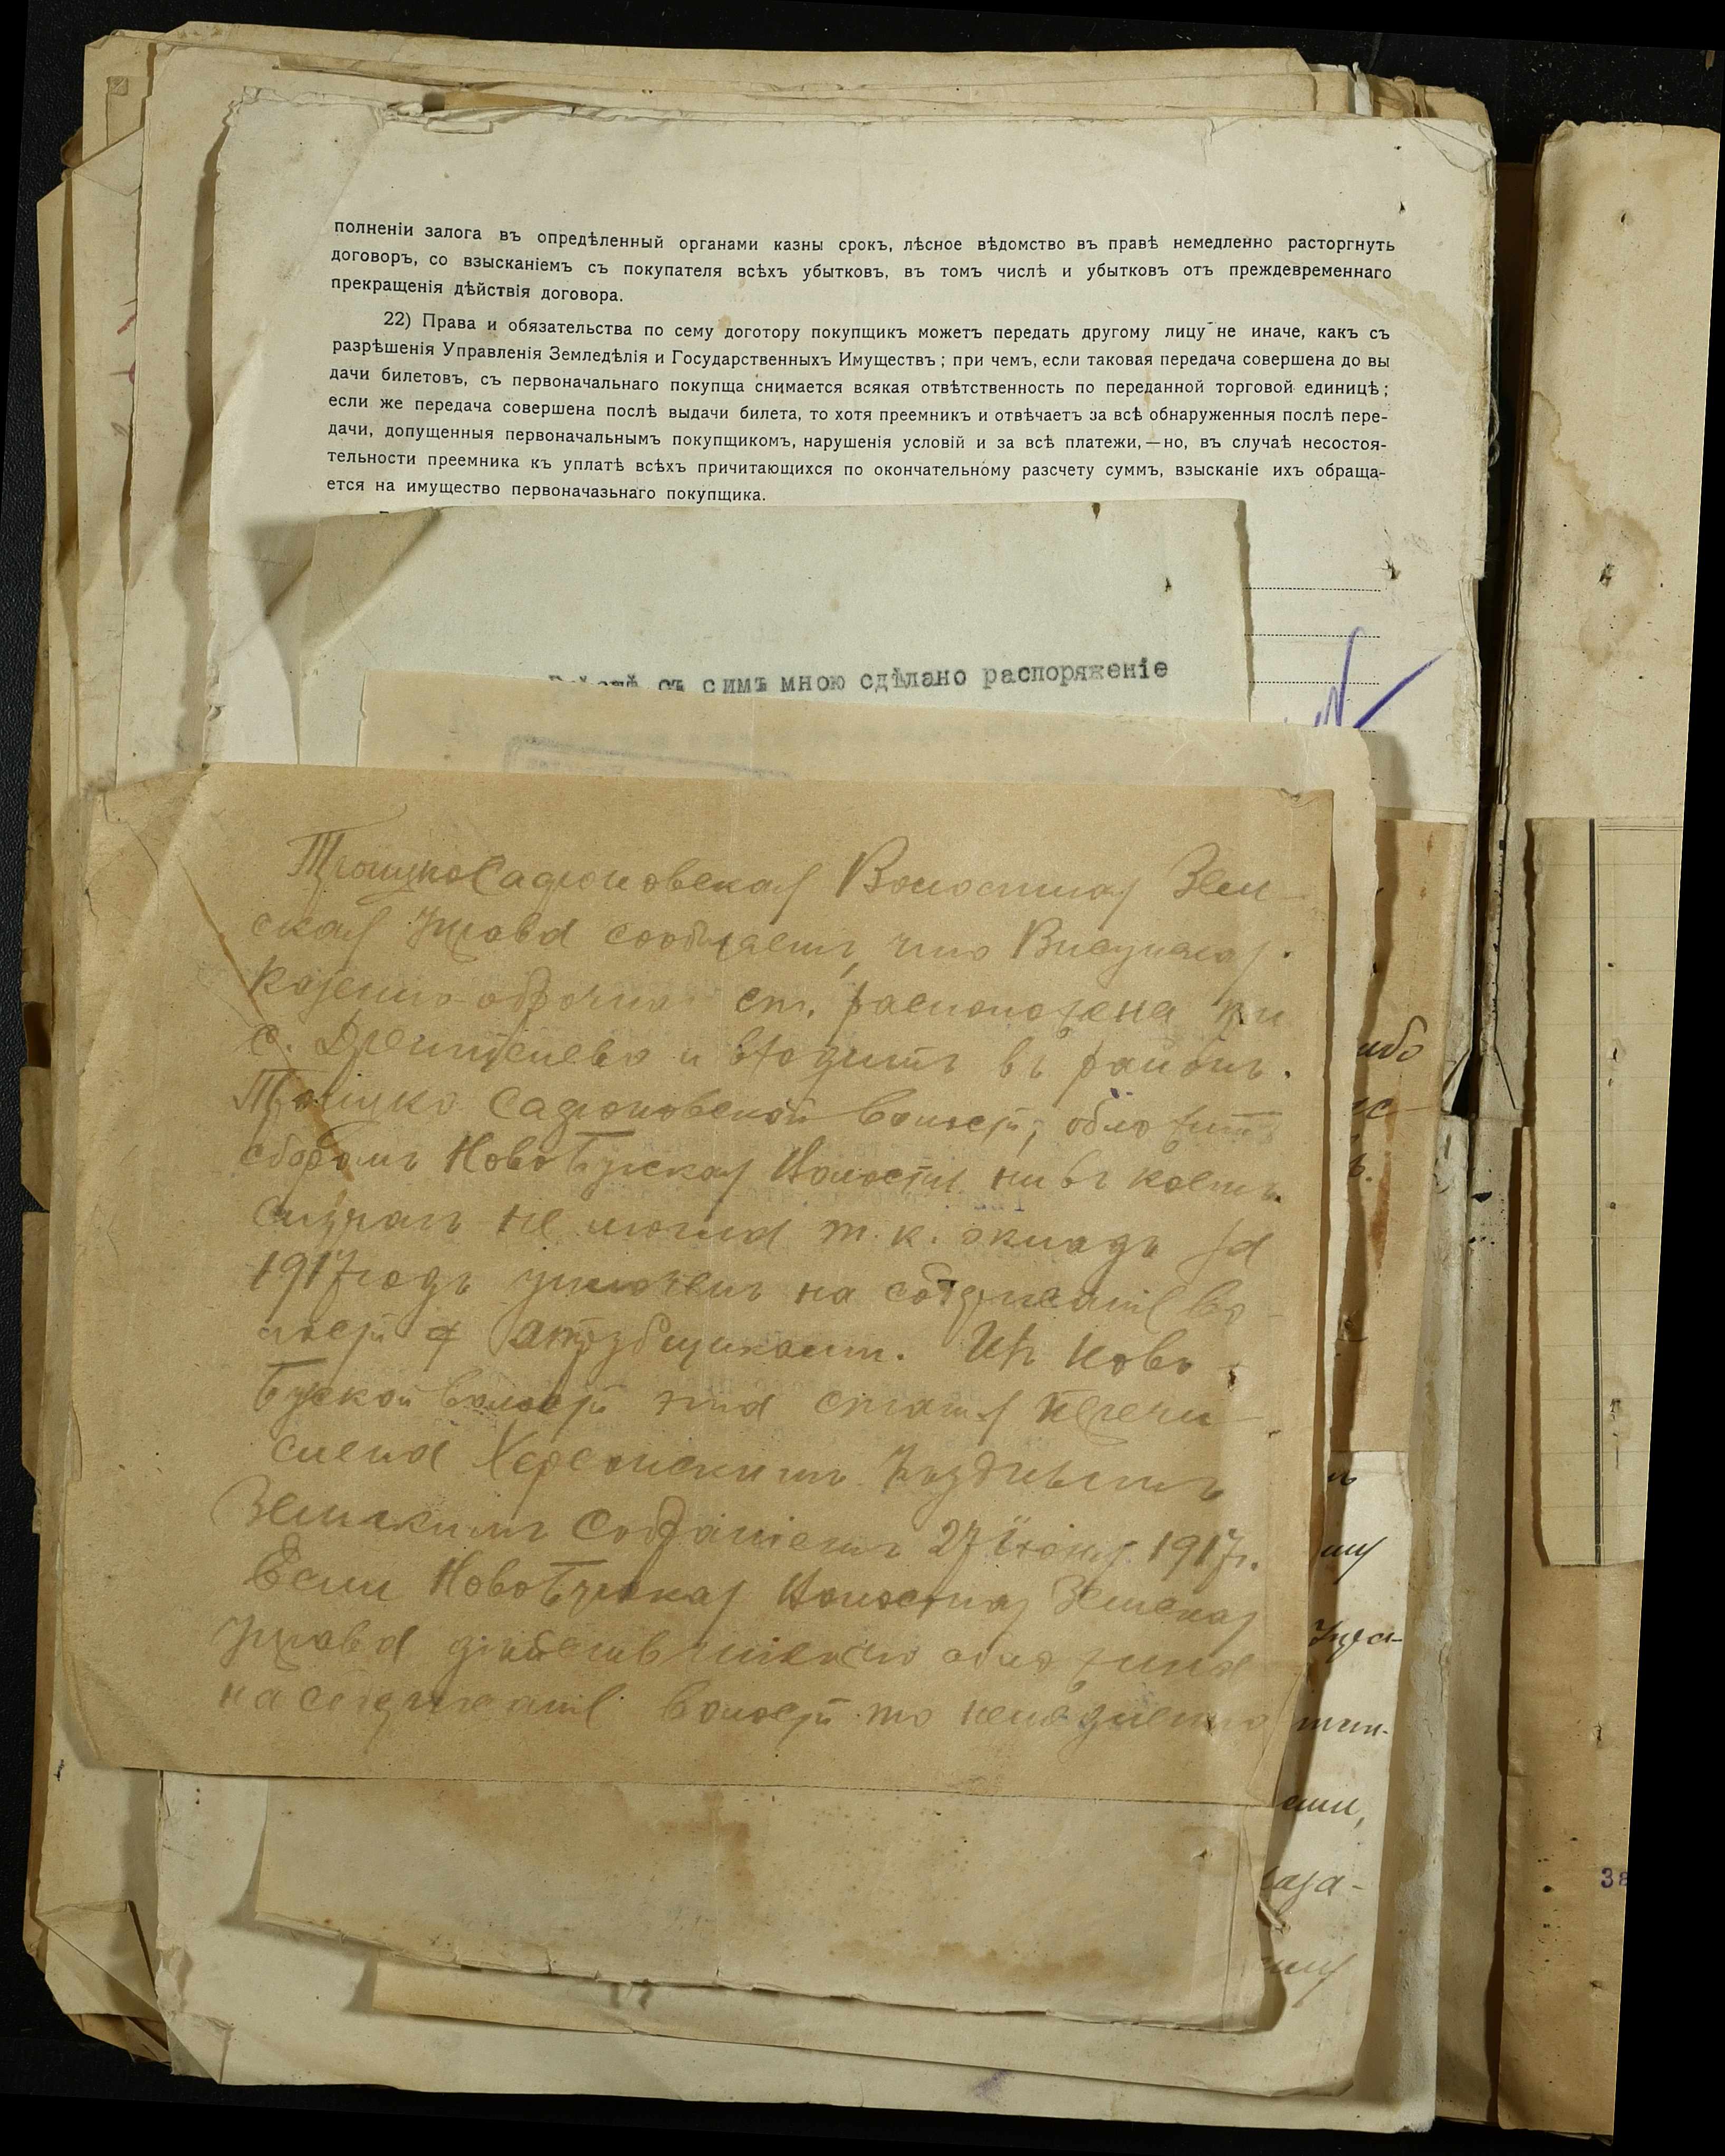 полненіи залога въ опредѣленный органами казны срокъ, лѣсное вѣдомство въ правѣ немедленно расторгнуть
договоръ, со взысканіемъ съ покупателя всѣхъ убытковъ, въ томъ числѣ и убытковъ отъ преждевременнаго
прекращенія дѣйствія договора.
22) Права и обязательства по сему доготору покупщикъ можетъ передать другому лицу не иначе, какъ съ
разрѣшенія Управленія Земледѣлія и Государственныхъ Имуществъ; при чемъ, если таковая передача совершена до вы
дачи билетовъ, съ первоначальнаго покупща снимается всякая отвѣтственность по переданной торговой единицѣ;
если же передача совершена послѣ выдачи билета, то хотя преемникъ и отвѣчаетъ за всѣ обнаруженныя послѣ пере-
дачи, допущенныя первоначальнымъ покупщикомъ, нарушенія условій и за всѣ платежи,—но, въ случаѣ несостоя-
тельности преемника къ уплатѣ всѣхъ причитающихся по окончательному разсчету суммъ, взысканіе ихъ обраща-
ется на имущество первоначазьнаго покупщика.
съ симъ мною сдѣлано распоряженіе
ТроицкоСафоновская Волостная Зем-
ская Управа сообщаетъ, что Висунская
Казенно-оброчная ст. расположена при
с. и входитъ въ раіонъ
Троицко Сафоновской волости, обложить
сборомъ НовоБугская Волость ни въ коемъ
случаѣ не могла т.к. окладъ за
1917 годъ уплоченъ на содержаніе во-
лости Изъ Ново
Бугской волости эта статья перечи-
слена Херсонскимъ Уѣзднымъ
Земскимъ Собраніемъ 27 Іюня 1917г.
Если НовоБугская Волостная Земская
Управа дѣйствительно обложила
на содержаніе волости то немедленно
ибо
Упра-
сими,
каза-